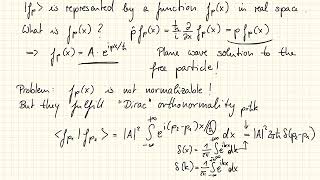 |fp> is represented by a function fp(x) in real space
What is fp(x)? p̂ fp(x) = ħ/i ∂/∂x fp(x) = p fp(x)
⇒ fp(x) = A · e^{ipx/ħ} Plane wave solution to the
free particle!
Problem: fp(x) is not normalizable!
But they fulfill "Dirac" orthonormality
<fp₁|fp₂> = |A|² ∫_{-∞}^{+∞} e^{i(p₂-p₁)x/ħ} dx = |A|² 2πħ δ(p₂-p₁)
δ(x) = 1/2π ∫_{-∞}^{+∞} e^{ikx} dk
δ(k) = 1/2π ∫_{-∞}^{+∞} e^{ikx} dx